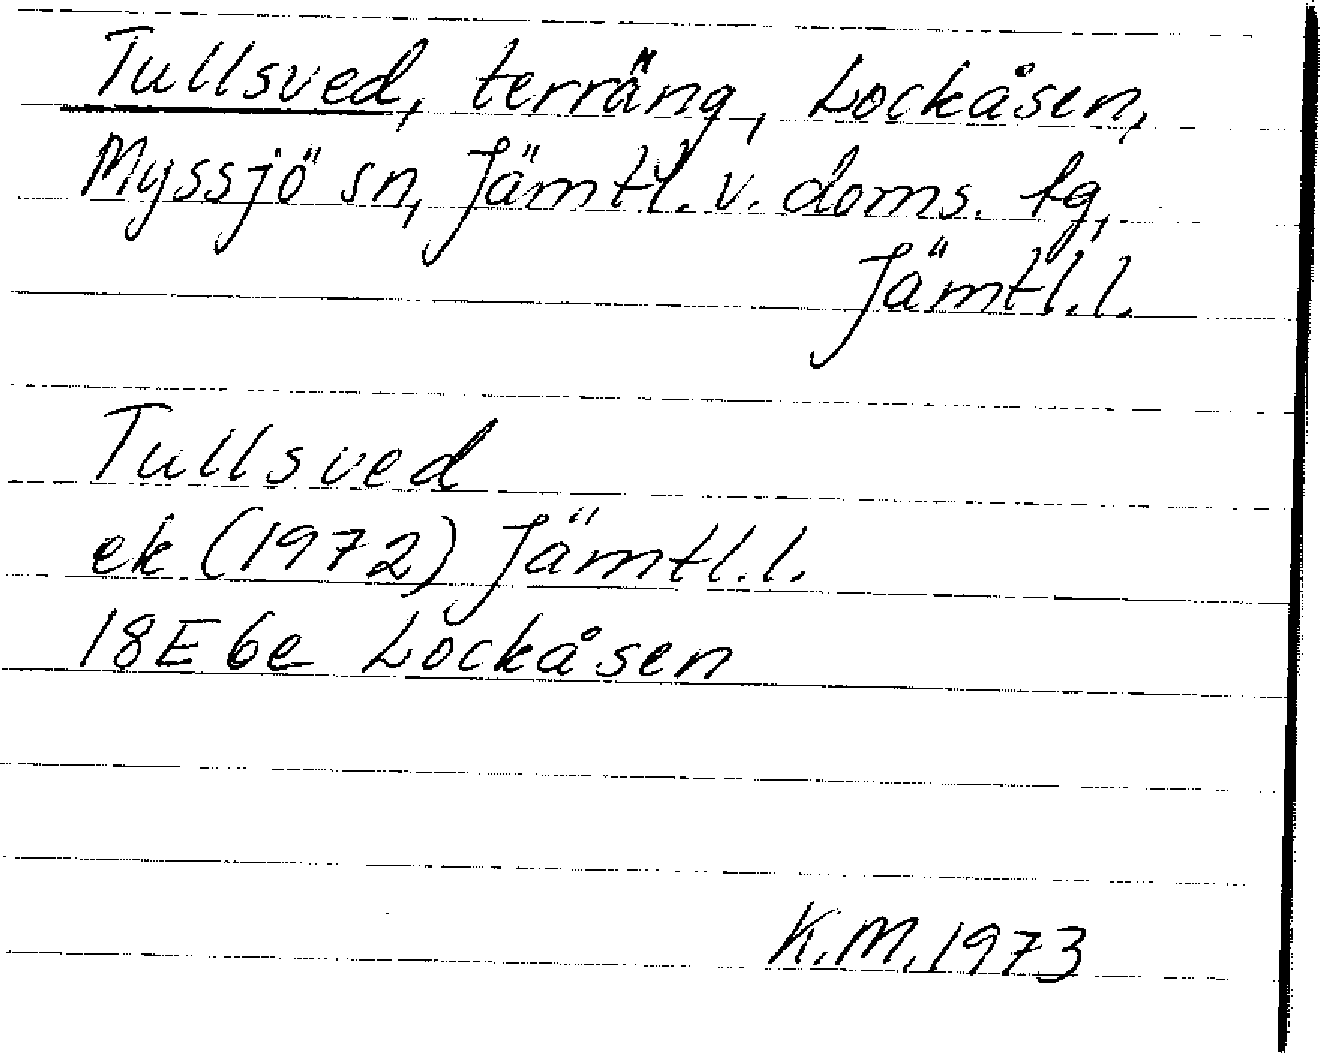 Tullsved, terräng, Lockåsen,
Myssjö sn, Jämtl. v. doms. tg,
Jämtl. l.
Tullsved
ek (1972) Jämtl. l.
18E 6e Lockåsen
K.M. 1973